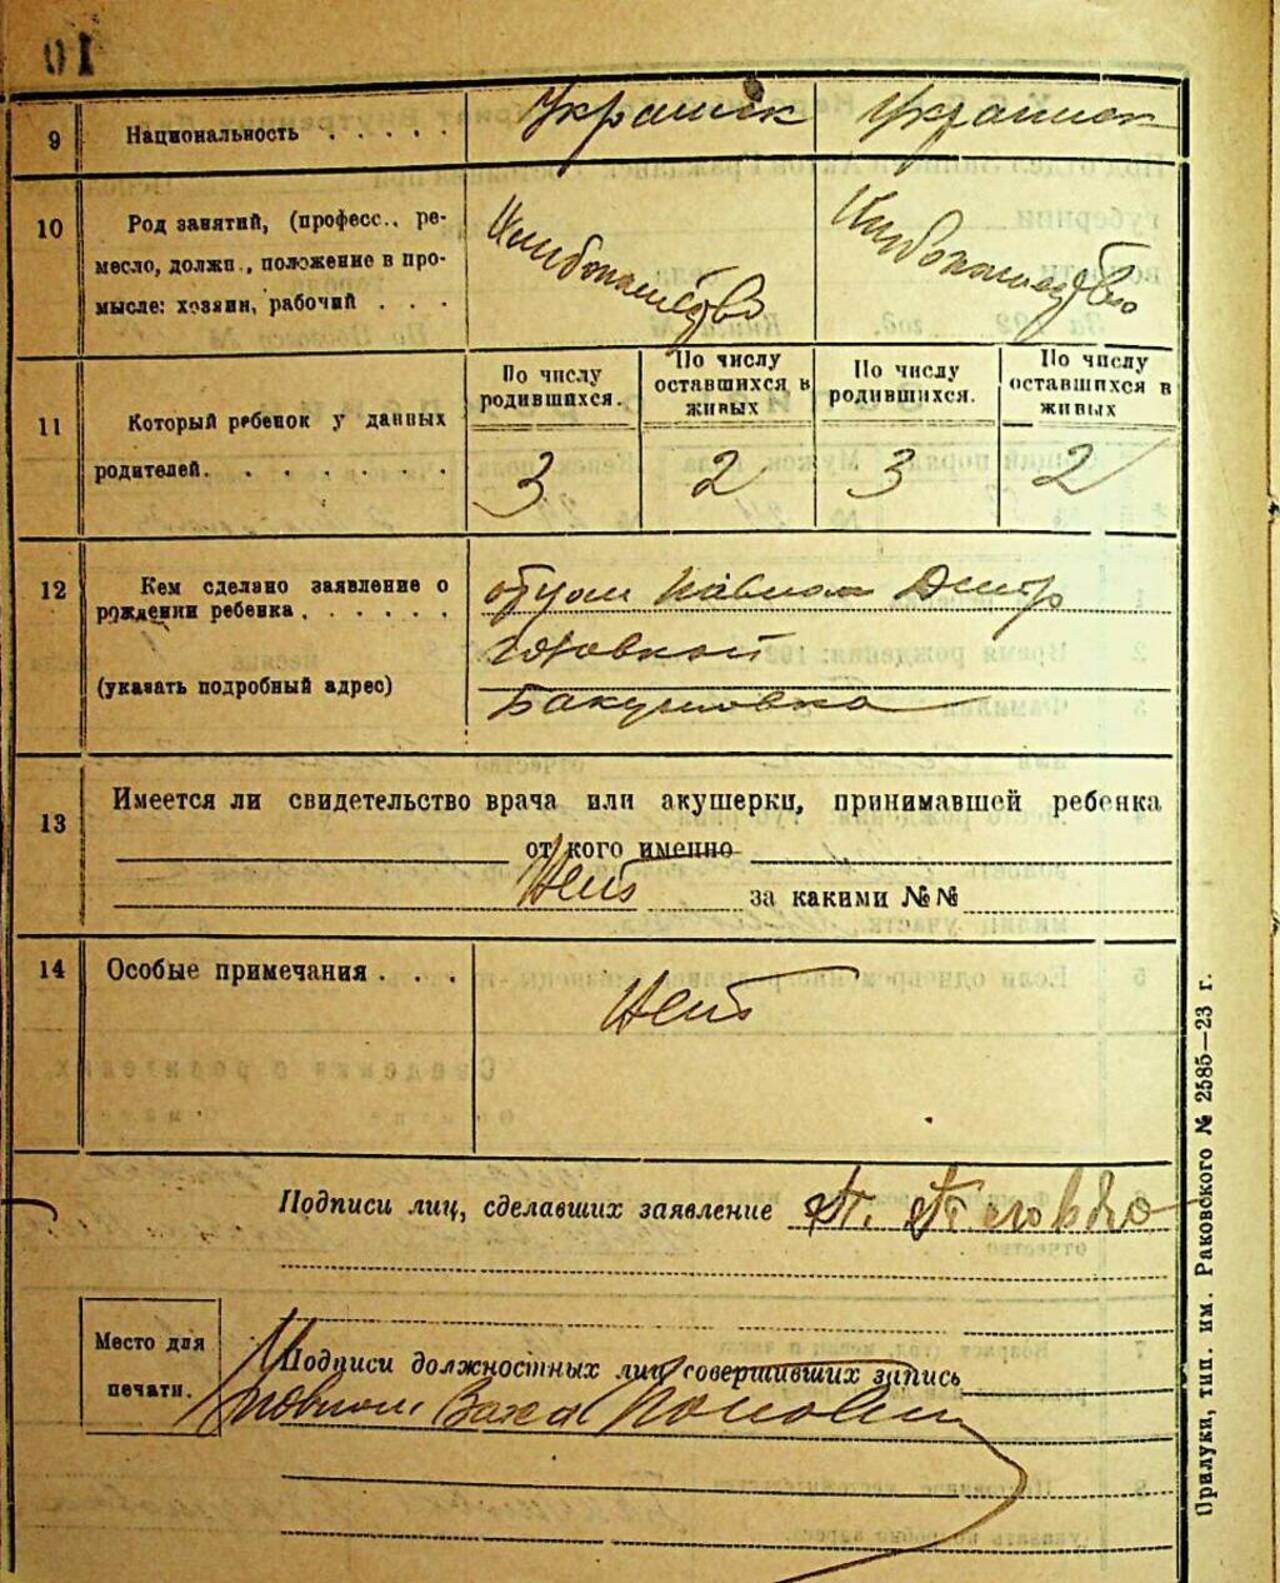 10
9 Национальность . . . . . Украинск Украинск
10 Род занятий, (професс., ре-
месло, должн., положение в про-
мысле: хозяин, рабочий . . .
Хлибопашество Хлибопашество
11 Который ребенок у данных
родителей. . . . . . .
По числу родившихся. По числу оставшихся в живых По числу родившихся. По числу оставшихся в живых
3 2 3 2
12 Кем сделано заявление о
рождении ребенка . . . . . .
(указать подробный адрес)
отцом Павлом Дмитр
Бакумовка
13 Имеется ли свидетельство врача или акушерки, принимавшей ребенка
от кого именно
Нет за какими №№
14 Особые примечания . . . Нет
Подписи лиц, сделавших заявление
Место для
печати.
Подписи должностных лиц совершивших запись
Прилуки, тип. им. Раковского № 2585—23 г.